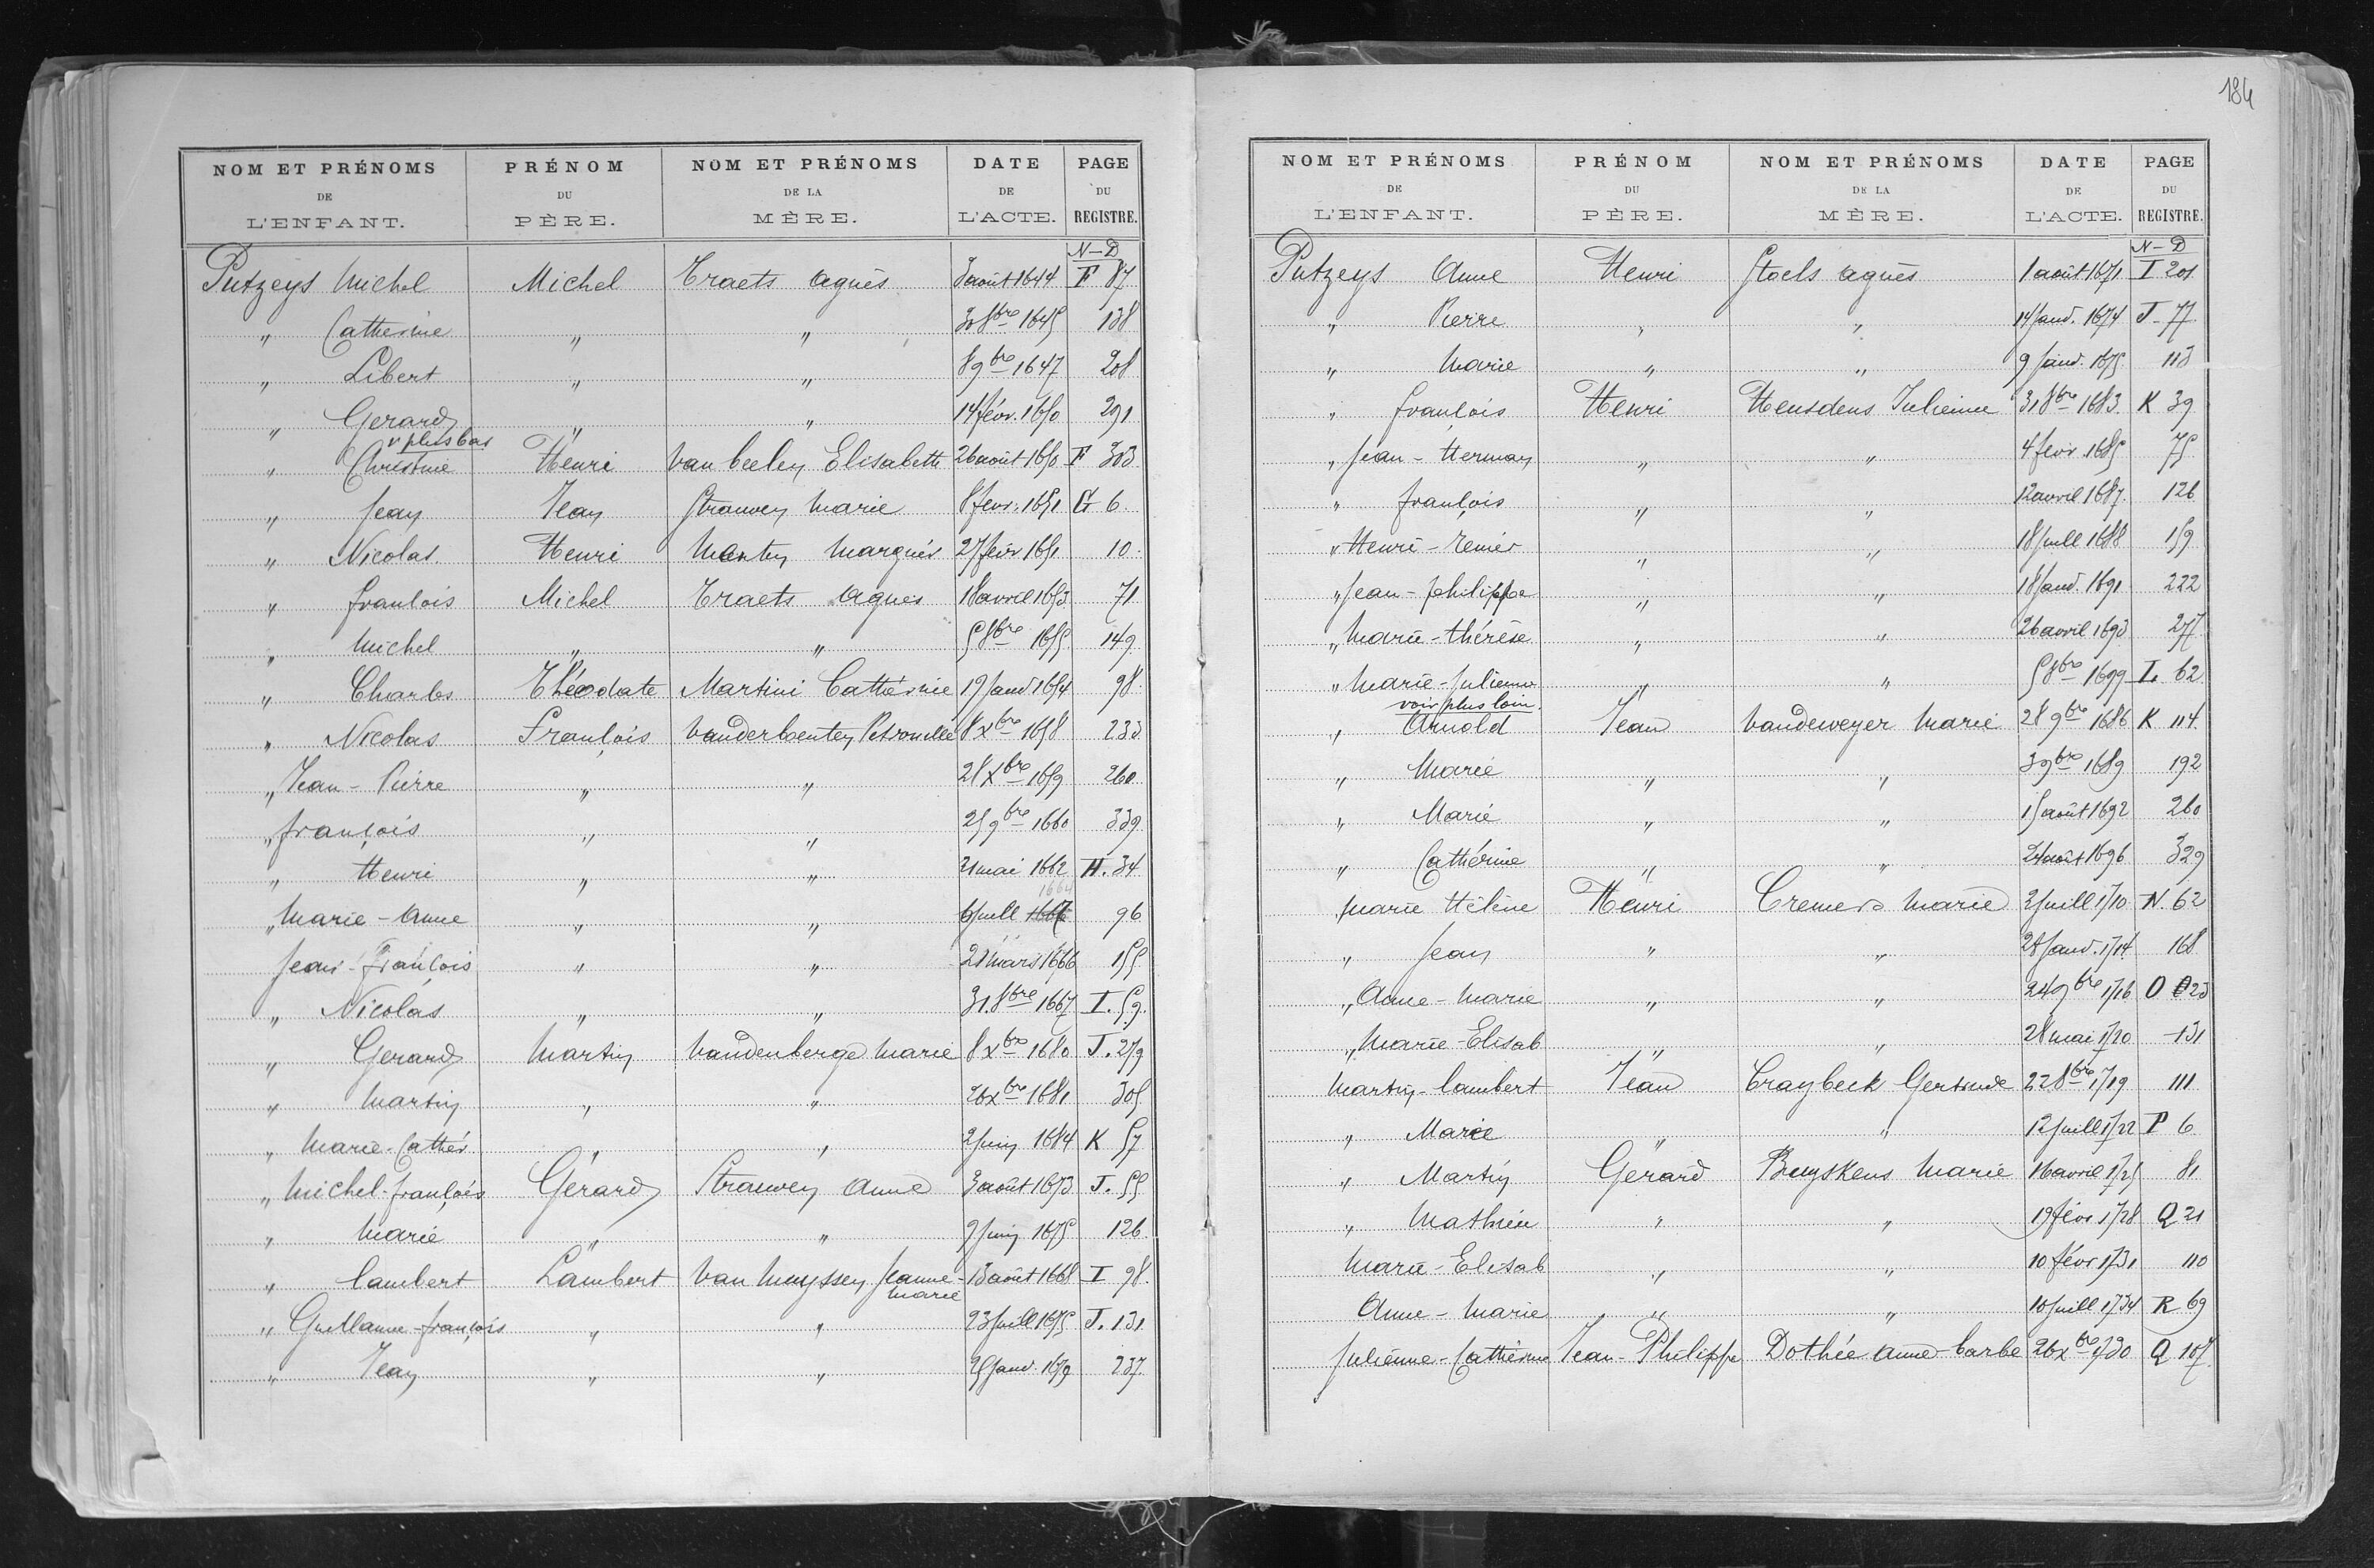 184
NOM ET PRÉNOMS DE L'ENFANT. PRÉNOM DU PÈRE. NOM ET PRÉNOMS DE LA MÈRE. DATE DE L'ACTE. PAGE DU REGISTRE.
N–D
Putzeys Michel Michel Traets Agnès 3 août 1644 F 87
" Catherine " " 30 8bre 1645 138
" Libert " " 8 9bre 1647 208
" Gerard " " 14 févr. 1650 291
v plus bas
" Christine Henri Van beelen Elisabeth 26 août 1650 F 303
" Jean Jean Strauven Marie 8 fevr. 1651 G 6.
" Nicolas. Henri Marguès 27 févr 1651 10.
" François Michel Traets Agnes 18 avril 1653 71
" Michel " " 5 8bre 1655 149
" Charles Théodate Martini Cathérine 19 janv 1654 98.
" Nicolas François Petronille 8 xbre 1658 233
" Jean-Pierre " " 28 xbre 1659 260.
" françois " " 25 9bre 1660 339
" Henri " " 21 mai 1662 H. 34
1664
" Marie-Anne " " 6 juill 96
Jean-François " " 21 mars 1666 155
" Nicolas " " 31. 8bre 1667 I. 59.
" Gerard Martin Vandenberge Marie 8 xbre 1680 J. 279
" Martin " " 26 xbre 1681 305
" Marie-Cathér " " 2 juin 1684 K 57
" Michel-françois Gérard Strauven Anne 3 août 1673 J. 55
" Marie " " 9 juin 1675 126.
" Lambert Lambert Van Muyssen Jeanne- 13 août 1668 I 98.
Marie
" Guillaume-françois " " 23 juill 1675 J. 131
" Jean " " 25 janv. 1679 237.
NOM ET PRÉNOMS DE L'ENFANT. PRÉNOM DU PÈRE. NOM ET PRÉNOMS DE LA MÈRE. DATE DE L'ACTE. PAGE DU REGISTRE.
N–D
Putzeys Anne Henri Stoels Agnès 1 août 1671 I 201
" Pierre " " 14 janv. 1674 J-77
" Marie " " 9 janv. 1675 113
" françois Henri Heusdens Julienne 31 8bre 1683. K 39
" Jean-Herman " " 4 fevr. 1685 75
" françois " " 12 avril 1687. 126
" Henri-Renier " " 18 juill 1688 159
" Jean-philippe " " 18 janv. 1691 222
" Marie-thérèse " " 26 avril 1693 277
" Marie-Julienne " " 5 8bre 1699 L. 62
voir plus loin.
" Arnold Jean Vandeweyer Marie 28 9bre 1686 K 114.
" Marie " " 3 9bre 1689 192
" Marie " " 15 août 1692 260
" Cathérine " " 24 août 1696 329
Marie Hélène Henri Cremers Marie 2 juill 1710 N. 62
" Jean " " 28 janv. 1714. 168
" Anne-Marie " " 24 9bre 1716 O 23
" Marie-Elisab " " 28 mai 1720 131
Martin-Lambert Jean Craybeck Gertrude 22 8bre 1719 111
" Marie " " 12 juill 1722 P 6
" Martin Gérard Buyskens Marie 16 avril 1725 81
" Mathieu " " 19 févr 1728 Q 21
Marie-Elisab " " 10 févr 1731 110
Anne-Marie " " 10 juill 1734 R 69
Julienne-Cathérine Jean-Philippe Dothée Anne-barbe 26 xbre 1730 Q 107